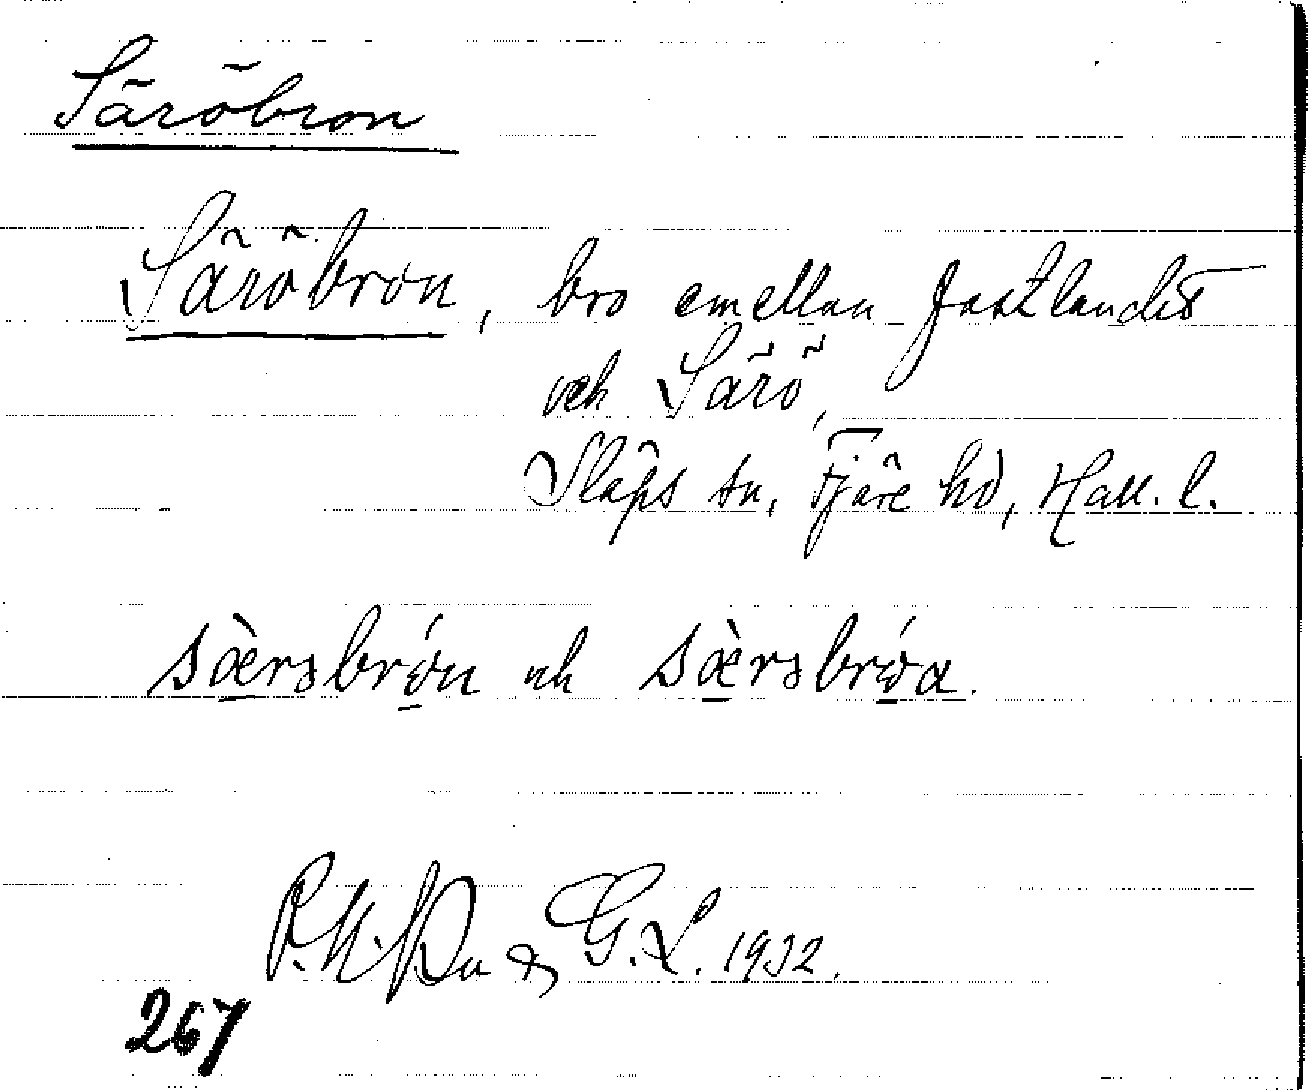 Säröbron
Säröbron, bro emellan fastlandet
och Särö,
Släps sn, Fjäre hd, Hall. l.
sæ̀rsbrón och sæ̀rsbróa.
& G. L. 1932.
267